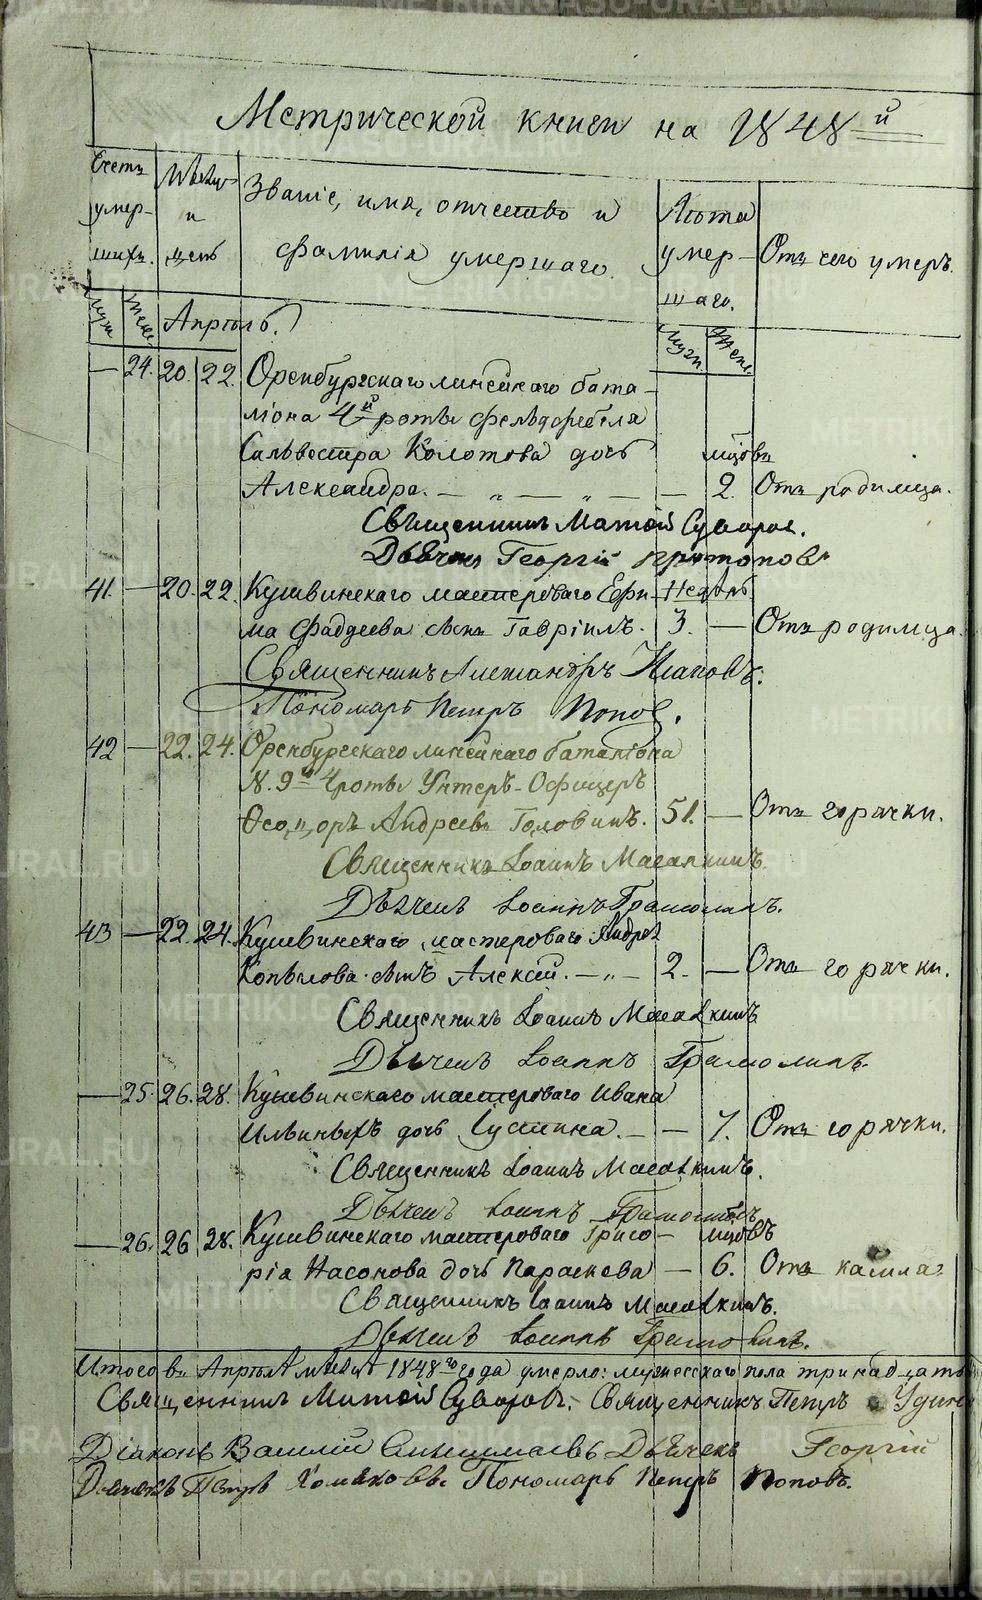 Метрической книги на 1848й
Счетъ умер-шихъ.
Мѣсяцъ и день
Званіе, имя, отчество и фамилія умершаго.
Лѣта умер-шаго.
Отъ чего умеръ.
Муж. Жен.
Апрѣль.
Муж. Жен.
— 24. 20. 22. Оренбургскаго линейнаго бата-
ліона 4й роты Фельдфебеля
Сильвестра Колотова дочь мцовъ
Александра. — „ — „ — — 2. Отъ родимца.
Священникъ Матѳей Суворов.
Дьячекъ Георгій Протопоповъ
41. — 20. 22. Кушвинскаго мастероваго Ефи- Недѣль
ма Фадѣева сынъ Гавріилъ. 3. — Отъ родимца.
Священникъ Александръ
Пономарь Петръ Попов.
42 — 22. 24. Оренбургскаго линейнаго баталіона
N. 9й 4 роты Унтеръ-Офицеръ
Ѳеодоръ Андреевъ Головинъ. 51. — Отъ горячки.
Священникъ Іоаннъ
Дьячекъ Іоаннъ
43 — 22. 24. Кушвинскаго мастероваго Андрея
Копылова сынъ Алексѣй. — „ — 2. — Отъ горячки.
Священникъ Іоаннъ
Дьячекъ Іоаннъ
— 25. 26. 28. Кушвинскаго мастероваго Ивана
Ильиныхъ дочь Іустина. — — 7. Отъ горячки.
Священникъ Іоаннъ
Дьячекъ Іоаннъ
— 26. 26 28. Кушвинскаго мастероваго Григо- мцовъ
рія Насонова дочь Параскева — 6. Отъ кашля.
Священникъ Іоаннъ
Дьячекъ Іоаннъ
Итого въ Апрѣлѣ мѣсяцѣ 1848го года умерло: мужескаго пола тринадцать
Священникъ Матѳей Суворовъ. Священникъ Петръ
Діаконъ Василій Дьячекъ Георгій
Дьячекъ Петръ Хомяковъ. Пономарь Петръ Поповъ.
METRIKI.GASO-URAL.RU